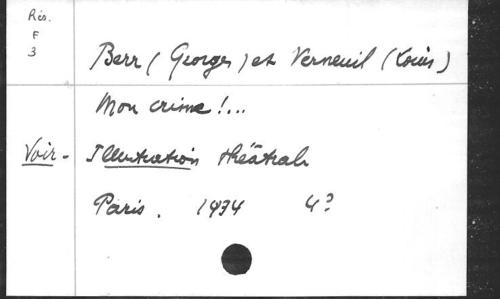 Rés.
F
3
Berr (Georges) et Verneuil (Louis)
Mon crime !...
Voir - Illustration théâtrale
Paris. 1934 4°